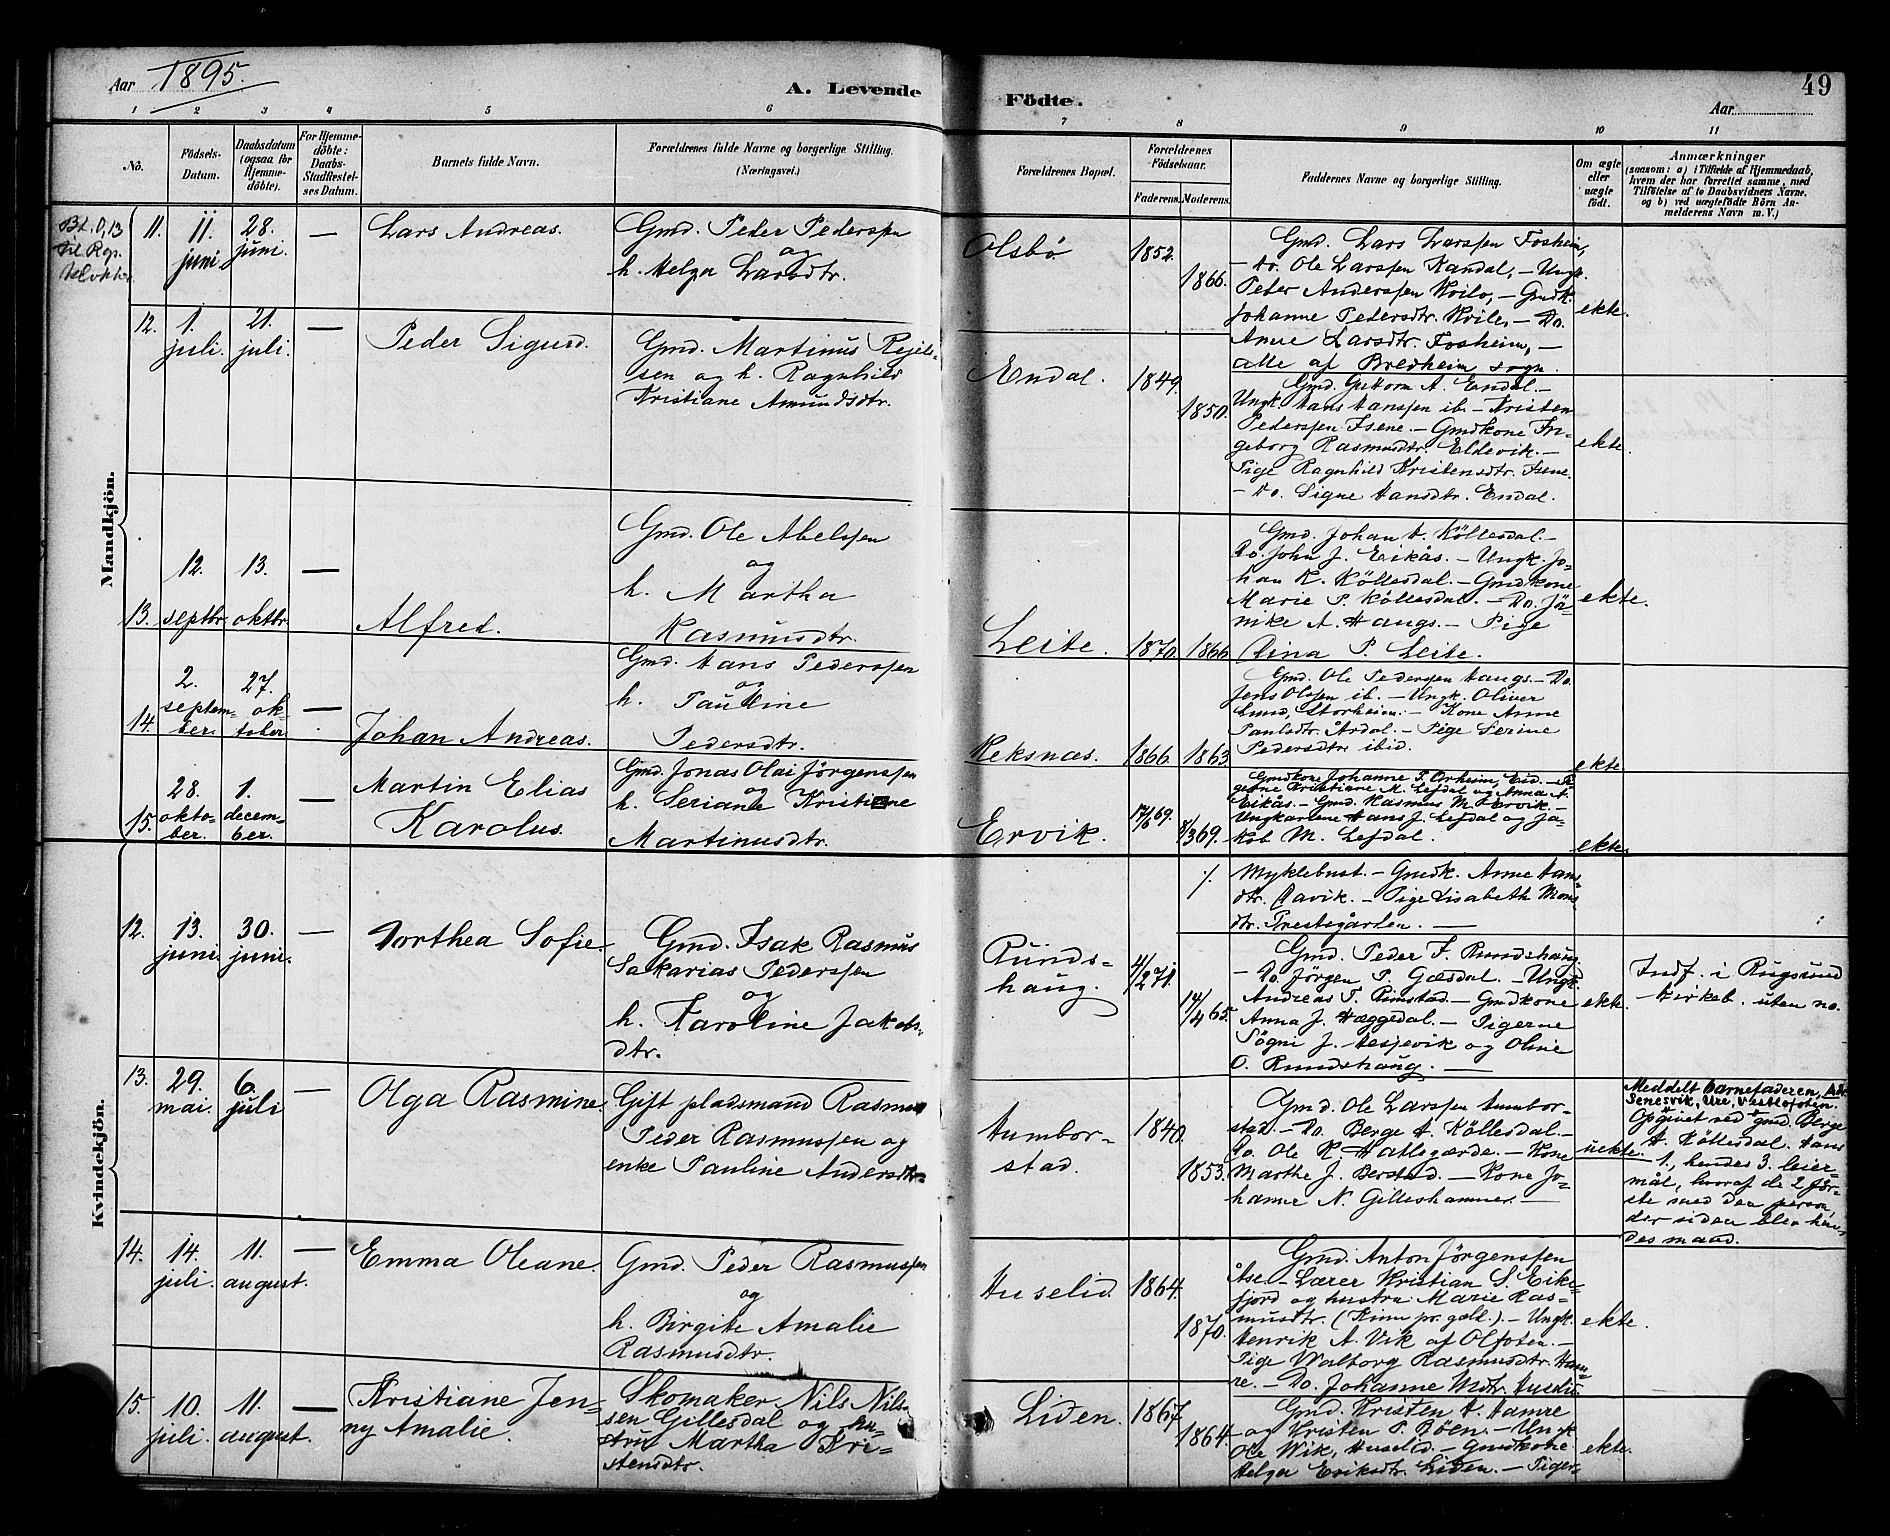 Aar 1895.
A. Levende Födte.
Aar
49
1 2 3 4 5 6 7 8 9 10 11
No.
Födsels-Datum.
Daabsdatum (ogsaa for Hjemmedöbte).
For Hjemmedöbte: Daabs-Stadfestelses Datum.
Barnets fulde Navn.
Forældrenes fulde Navne og borgerlige Stilling.
(Næringsvei.)
Forældrenes Bopæl.
Forældrenes Födselsaar.
Faderens. Moderens.
Faddernes Navne og borgerlige Stilling.
Om ægte eller uægte födt.
Anmærkninger
(saasom: a) i Tilfælde af Hjemmedaab, hvem der har forrettet samme, med Tilföielse af to Daabsvidners Navne, og b) ved uægtefödte Börn Anmelderens Navn m. V.)
Mandkjön.
11. 11. juni. 28. juni. —
Lars Andreas.
Gmd. Peder Pederssen
og
h. Helga Larsdtr.
Olsbø
1852. 1866.
Gmd. Lars Larssen Fosheim,
– Do. Ole Larssen Kandal, – Ungk.
Peter Anderssen Kvile, – Gmdk.
Johanne Pedersdtr. Kvile – Do.
Anne Larsdtr. Fosheim, –
alle af Bredheim sogn.
ekte.
12. 1. juli. 21. juli. —
Peder Sigurd.
Gmd. Martinus
sen og h. Ragnhild
Kristiane Amundsdtr.
Endal.
1849. 1850.
Gmd. Guttorm A. Endal. –
Ungk. Hans Hanssen ib. – Kristen
Pederssen Isene. – Gmdkone In-
geborg Rasmusdtr. Eldevik. –
Pige Ragnhild Kristensdtr. Isene.
– Do. Signe Hansdtr. Endal.
ekte.
13. 12. septbr. 13. oktbr. —
Alfred.
Gmd. Ole Abelssen
og
h. Martha
Rasmusdtr.
Leite.
1870. 1866
Gmd. Johan A. Köllesdal. –
Do. John J. Eikås. – Ungk. Jo-
han K. Köllesdal. – Gmdkone
Marie P. Köllesdal. – Do. Jä-
nike A. Haugs. – Pige
Lina P. Leite.
ekte.
14. 2. septem-ber. 27. ok-tober —
Johan Andreas.
Gmd. Hans Pederssen
og
h. Pauline
Pedersdtr.
Reksnæs.
1866. 1863
Gmd. Ole Pederssen Haugs. – Do
Jens Olssen ib. – Ungk. Oliver
Lund, Storheim. – Kone Anne
Paulsdtr. Årdal. – Pige Serine
Pedersdtr ibid.
ekte
15. 28. okto-ber. 1. decem-ber. —
Martin Elias
Karolus.
Gmd. Jonas Olai Jörgenssen
og
h. Seriane Kristiane
Martinusdtr.
Ervik.
17/6 69. 8/3 69.
Gmdkone Johanne P. Orheim, Eid. – Pi-
gerne Kristiane M. Lefdal og Anna A.
Eikås. – Gmd. Rasmus M. Ervik. –
Ungkarlene Hans J. Lefdal og Ja-
kob M. Lefdal.
ekte.
Kvindekjön.
Myklebust. – Gmdk. Anne Hans-
dtr. Davik. – Pige Lisabeth Mons-
dtr. Prestegården. —
12. 13. juni. 30. juni. —
Dorthea Sofie.
Gmd. Isak Rasmus
Sakarias Pederssen
og
h. Karoline Jakobs-
dtr.
Ründs-
haug.
4/2 71. 14/4 65.
Gmd. Peder F. Rundshaug.
– Do. Jörgen P. Gæsdal. – Ungk.
Andreas T. Rimstad. – Gmdkone
Anna J. Hæggedal. – Pigerne
Søgni J. Hesjevik og Oline
O. Rundshaug. —
ekte
Indf. i Rugsund
kirkeb. uten no.
13. 29. mai. 6. juli —
Olga Rasmine.
Gift pladsmand Rasmus
Peder Rasmussen og
enke Pauline Andersdtr
Humbor-
stad.
1840. 1853.
Gmd. Ole Larssen Humbor-
stad. – Do. Berge A. Köllesdal. –
Do. Ole R. Hatlegjerde. – Kone
Marthe J. Berstad. – Kone Jo-
hanne N. Gilleshammer. —
uekte.
Meddelt barnefaderen,
Senesvik, Ure, Vestlofoten.
Opgivet ved gmd. Berge
A. Köllesdal. Hans
1., hendes 3. leier-
mål, hvoraf de 2 för-
ste med den person,
der siden blev hen-
des mand.
14. 14. juli. 11. august. —
Emma Oleane.
Gmd. Peder Rasmussen
og
h. Birgite Amalie
Rasmusdtr.
Huselid.
1864. 1870.
Gmd. Anton Jörgenssen
Åse. – Lærer Kristian S. Eike-
fjord og hustru Marie Ras-
musdtr. (Kinn pr.gæld.). – Ungk.
Henrik A. Vik af Olfoten. –
Pige Walborg Rasmusdtr. Ham-
re. – Do. Johanne Mdtr. Huselid
ekte.
15. 10. juli. 11. august. —
Kristiane Jen-
ny Amalie.
Skomaker Nils Nils-
sen Gillesdal og hu-
stru Martha Kri-
stensdtr.
Liden.
1867. 1864.
Gmd. Kristen A. Hamre
– og Kristen P. Böen. – Ungk
Ole Wik, Huselid. – Gmdkone
Helga Eriksdtr. Liden. – Piger-
ekte.